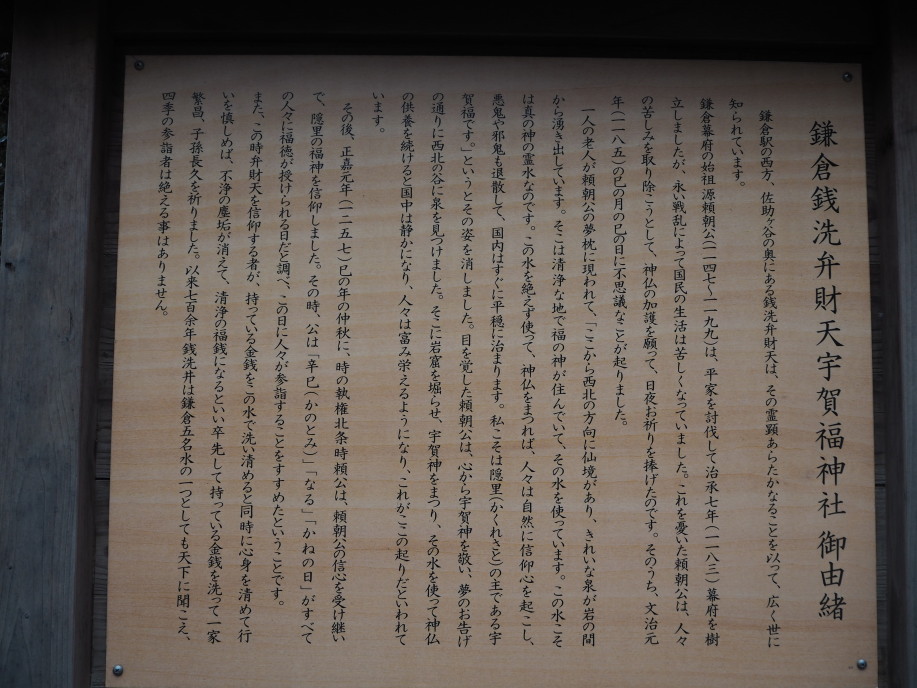 鎌倉銭洗弁財天宇賀福神社 御由緒
鎌倉駅の西方、佐助ヶ谷の奥にある銭洗弁財天は、その霊顕あらたかなることを以って、広く世に
知られています。
鎌倉幕府の始祖源頼朝公(一一四七〜一一九九)は、平家を討伐して治承七年(一一八三)幕府を樹
立しましたが、永い戦乱によって国民の生活は苦しくなっていました。これを憂いた頼朝公は、人々
の苦しみを取り除こうとして、神仏の加護を願って、日夜お祈りを捧げたのです。そのうち、文治元
年(一一八五)の巳の月の巳の日に不思議なことが起りました。
一人の老人が頼朝公の夢枕に現われて、「ここから西北の方向に仙境があり、きれいな泉が岩の間
から湧き出しています。そこは清浄な地で福の神が住んでいて、その水を使っています。この水こそ
は真の神の霊水なのです。この水を絶えず使って、神仏をまつれば、人々は自然に信仰心を起こし、
悪鬼や邪鬼も退散して、国内はすぐに平穏に治まります。私こそは隠里(かくれざと)の主である宇
賀福です。」というとその姿を消しました。目を覚した頼朝公は、心から宇賀神を敬い、夢のお告げ
の通りに西北の谷に泉を見つけました。そこに岩窟を堀らせ、宇賀神をまつり、その水を使って神仏
の供養を続けると国中は静かになり、人々は富み栄えるようになり、これがここの起りだといわれて
います。
その後、正嘉元年(一二五七)巳の年の仲秋に、時の執権北条時頼公は、頼朝公の信心を受け継い
で、隠里の福神を信仰しました。その時、公は「辛巳(かのとみ)」「なる」「かねの日」がすべて
の人々に福徳が授けられる日だと調べ、この日に人々が参詣することをすすめたということです。
また、この時弁財天を信仰する者が、持っている金銭をこの水で洗い清めると同時に心身を清めて行
いを慎しめば、不浄の塵垢が消えて、清浄の福銭になるといい卒先して持っている金銭を洗って一家
繁昌、子孫長久を祈りました。以来七百余年銭洗井は鎌倉五名水の一つとしても天下に聞こえ、
四季の参詣者は絶える事はありません。